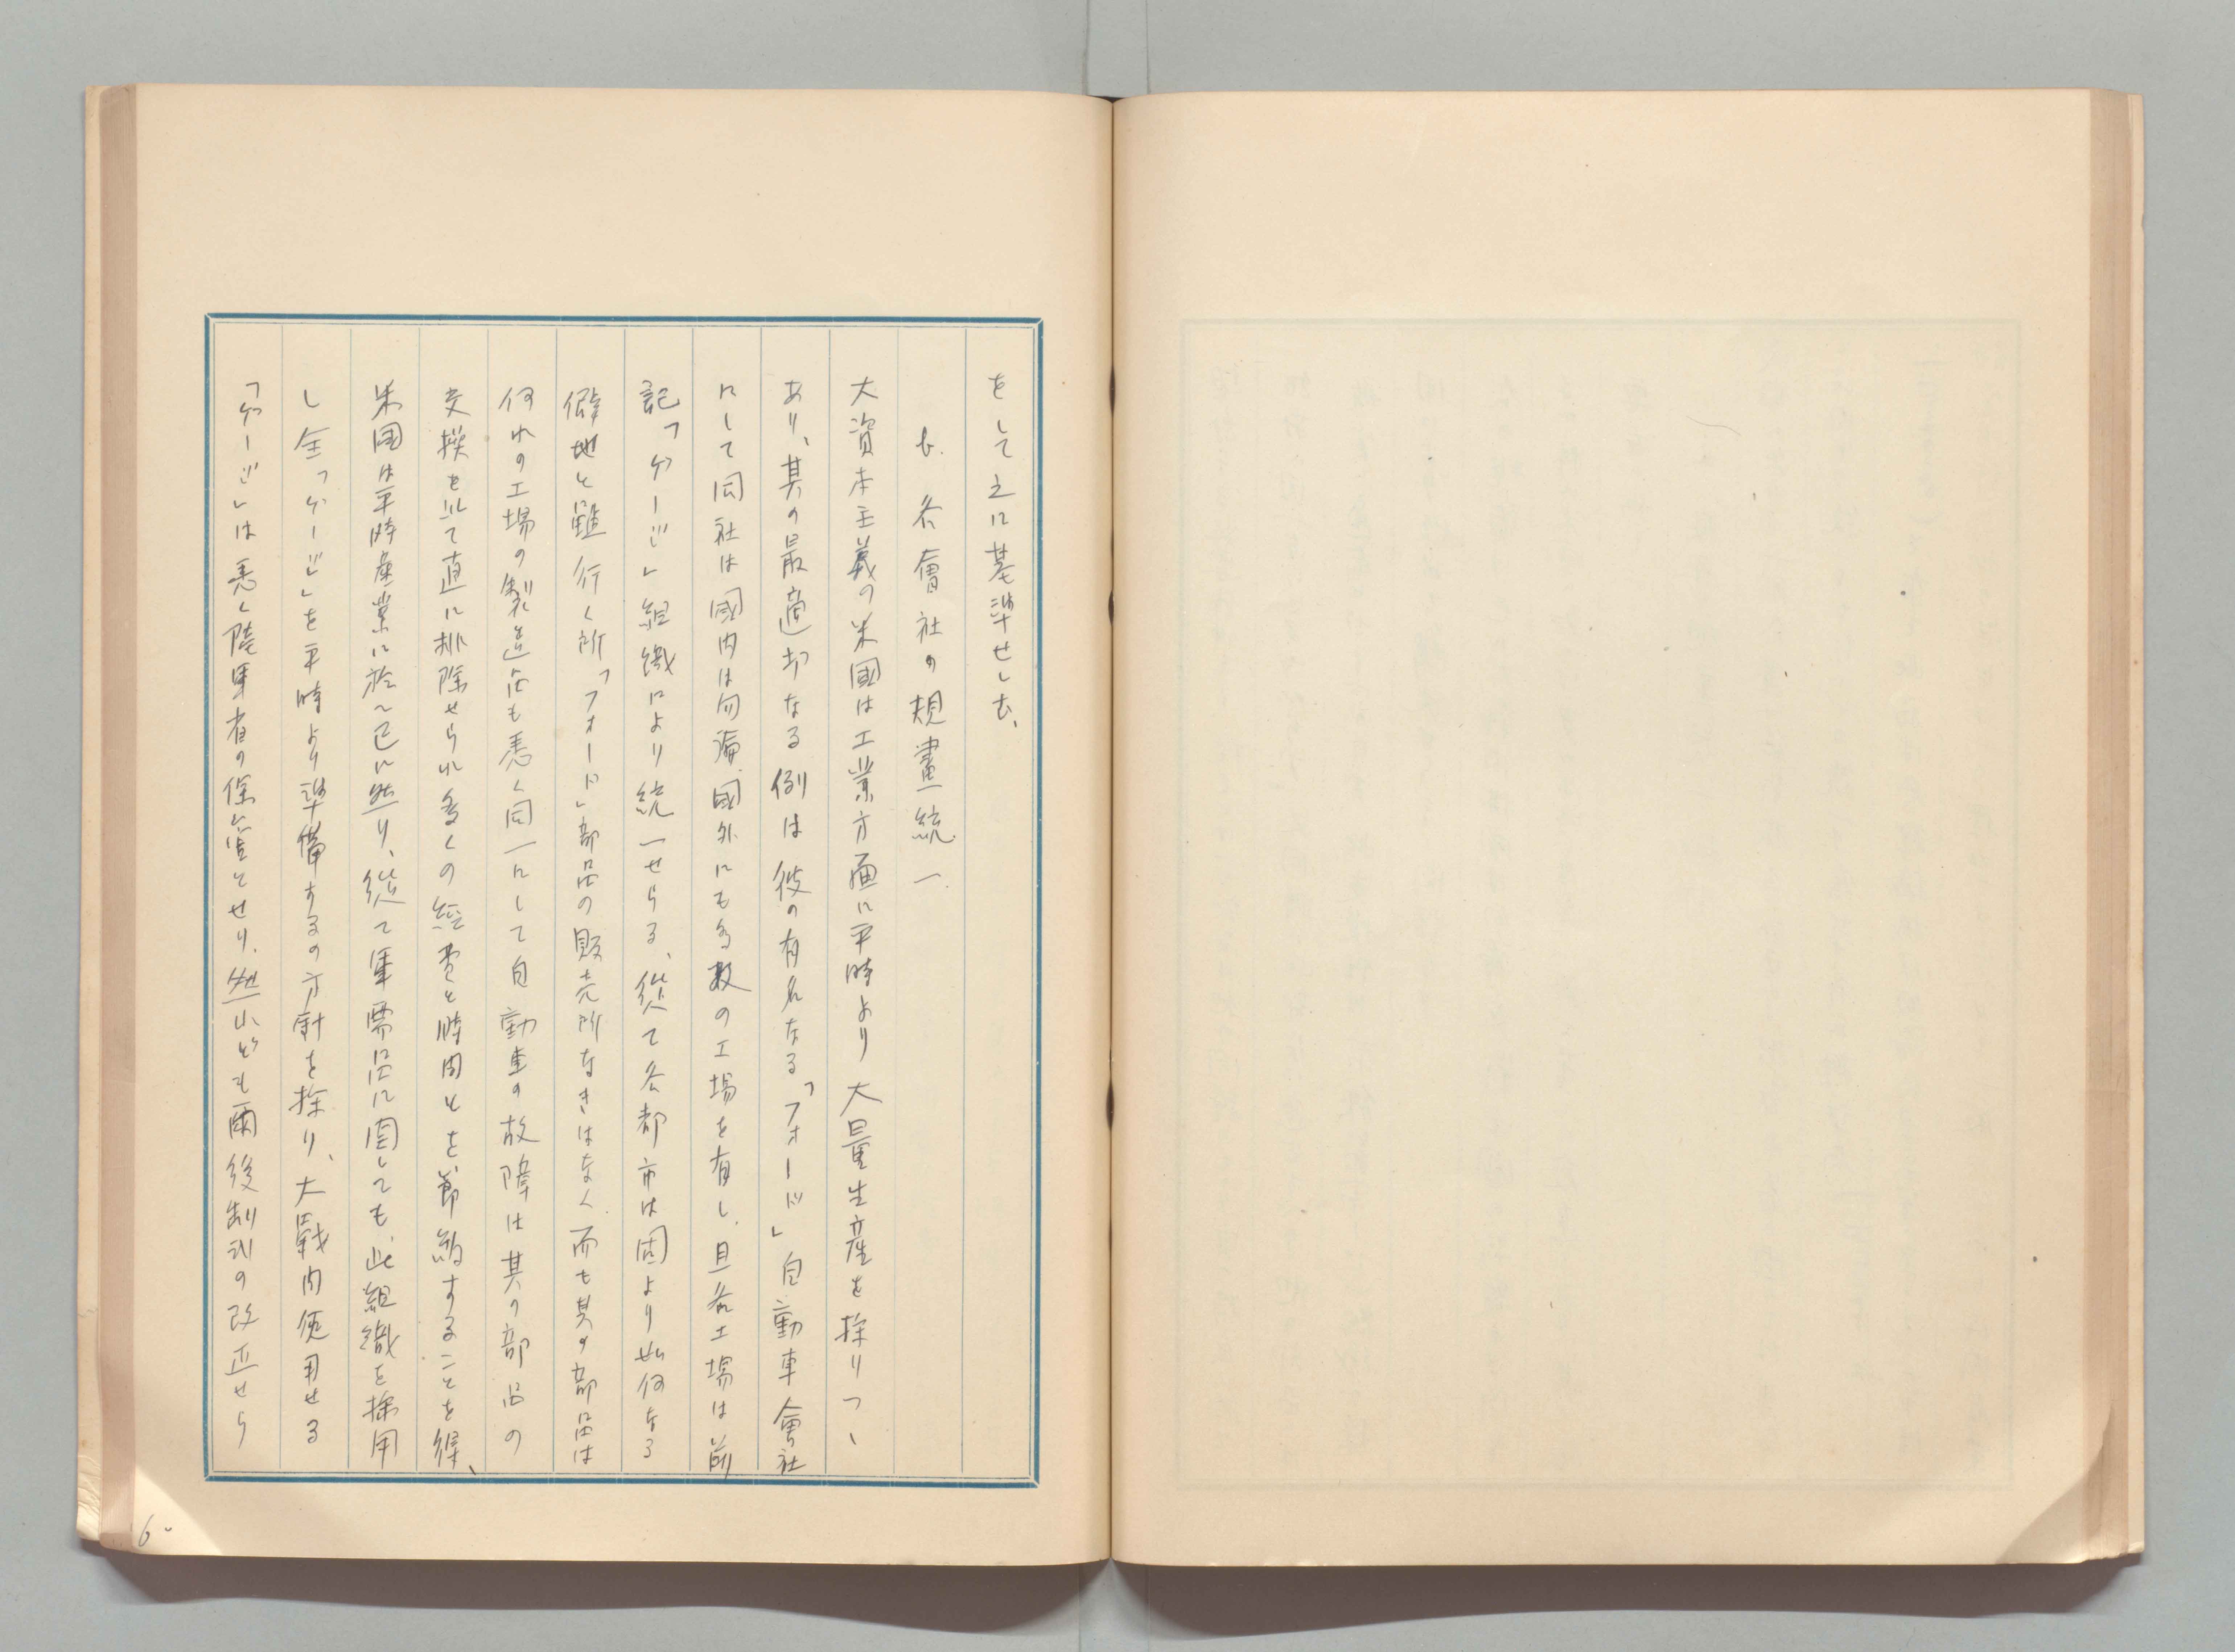 をして之に基準せしむ、
b. 各會社の規畫統一
大資本主義の米國は工業方面に平時より大量生産を採りつゝ
あり、其の最適切なる例は彼の有名なる「フォード」自動車會社
にして同社は國内は勿論國外にも多数の工場を有し、且各工場は前
記「ゲージ」組織により統一せらる、從て各都市は固より如何なる
僻地と雖行く所「フォード」部品の販売所なきはなく而も其の部品は
何れの工場の製造品も悉く同一にして自動車の故障は其の部品の
交換を以て直に排除せられ多くの經費と時間とを節約することを得、
米国は平時産業に於て已に然り、從て軍需品に関しても、此組織を採用
し全「ゲージ」を平時より準備するの方針を採り、大戰間使用せる
「ゲージ」は悉く陸軍省の保管とせり、然れども爾後制式の改正せら
60